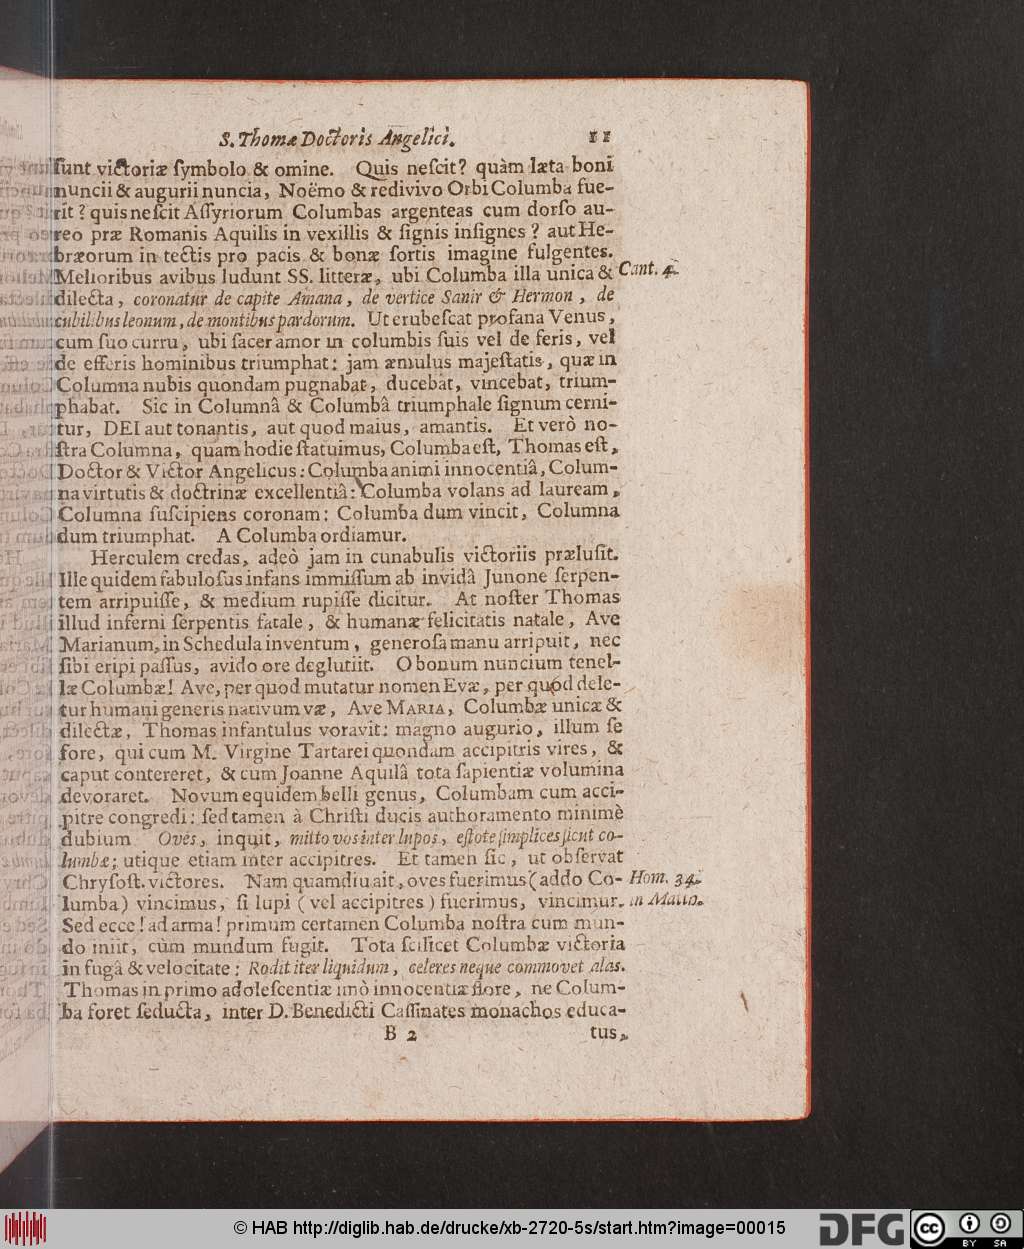 S. Thomæ Doctoris Angelici. 11
ſunt victoriæ ſymbolo & omine. Quis neſcit? quàm læta boni
nuncii & augurii nuncia, Noëmo & redivivo Orbi Columba fue-
rit? quis neſcit Aſſyriorum Columbas argenteas cum dorſo au-
reo præ Romanis Aquilis in vexillis & ſignis inſignes? aut He-
bræorum in tectis pro pacis & bonæ ſortis imagine fulgentes.
Melioribus avibus ludunt SS. litteræ, ubi Columba illa unica & Cant. 4.
dilecta, coronatur de capite Amana, de vertice Sanir & Hermon, de
cubilibus leonum, de montibus pardorum. Ut erubeſcat profana Venus,
cum ſuo curru, ubi ſacer amor in columbis ſuis vel de feris, vel
de efferis hominibus triumphat: jam æmulus majeſtatis, quæ in
Columna nubis quondam pugnabat, ducebat, vincebat, trium-
phabat. Sic in Columnâ & Columbâ triumphale ſignum cerni-
tur, DEI aut tonantis, aut quod maius, amantis. Et verò no-
ſtra Columna, quam hodie ſtatuimus, Columba eſt, Thomas eſt,
Doctor & Victor Angelicus: Columba animi innocentiâ, Colum-
na virtutis & doctrinæ excellentiâ: Columba volans ad lauream,
Columna ſuſcipiens coronam: Columba dum vincit, Columna
dum triumphat. A Columba ordiamur.
Herculem credas, adeò jam in cunabulis victoriis præluſit.
Ille quidem fabuloſus infans immiſſum ab invidâ Junone ſerpen-
tem arripuiſſe, & medium rupiſſe dicitur. At noſter Thomas
illud inferni ſerpentis fatale, & humanæ felicitatis natale, Ave
Marianum, in Schedula inventum, generoſa manu arripuit, nec
ſibi eripi paſſus, avido ore deglutiit. O bonum nuncium tenel-
læ Columbæ! Ave, per quod mutatur nomen Evæ, per quod dele-
tur humani generis nativum væ, Ave MARIA, Columbæ unicæ &
dilectæ, Thomas infantulus voravit: magno augurio, illum ſe
fore, qui cum M. Virgine Tartarei quondam accipitris vires, &
caput contereret, & cum Joanne Aquilâ tota ſapientiæ volumina
devoraret. Novum equidem belli genus, Columbam cum acci-
pitre congredi: ſed tamen à Chriſti ducis authoramento minimè
dubium Oves, inquit, mitto vos inter lupos, eſtote ſimplices ſicut co-
lumbæ; utique etiam inter accipitres. Et tamen ſic, ut obſervat
Chryſoſt. victores. Nam quamdiu ait, oves fuerimus (addo Co- Hom. 34.
lumba) vincimus, ſi lupi (vel accipitres) fuerimus, vincimur. in Matth.
Sed ecce! ad arma! primum certamen Columba noſtra cum mun-
do iniit, cùm mundum fugit. Tota ſcilicet Columbæ victoria
in fugâ & velocitate: Rodit iter liquidum, celeres neque commovet alas.
Thomas in primo adoleſcentiæ imò innocentiæ flore, ne Colum-
ba foret ſeducta, inter D. Benedicti Caſſinates monachos educa-
B 2 tus,
© HAB http://diglib.hab.de/drucke/xb-2720-5s/start.htm?image=00015
DFG cc BY SA